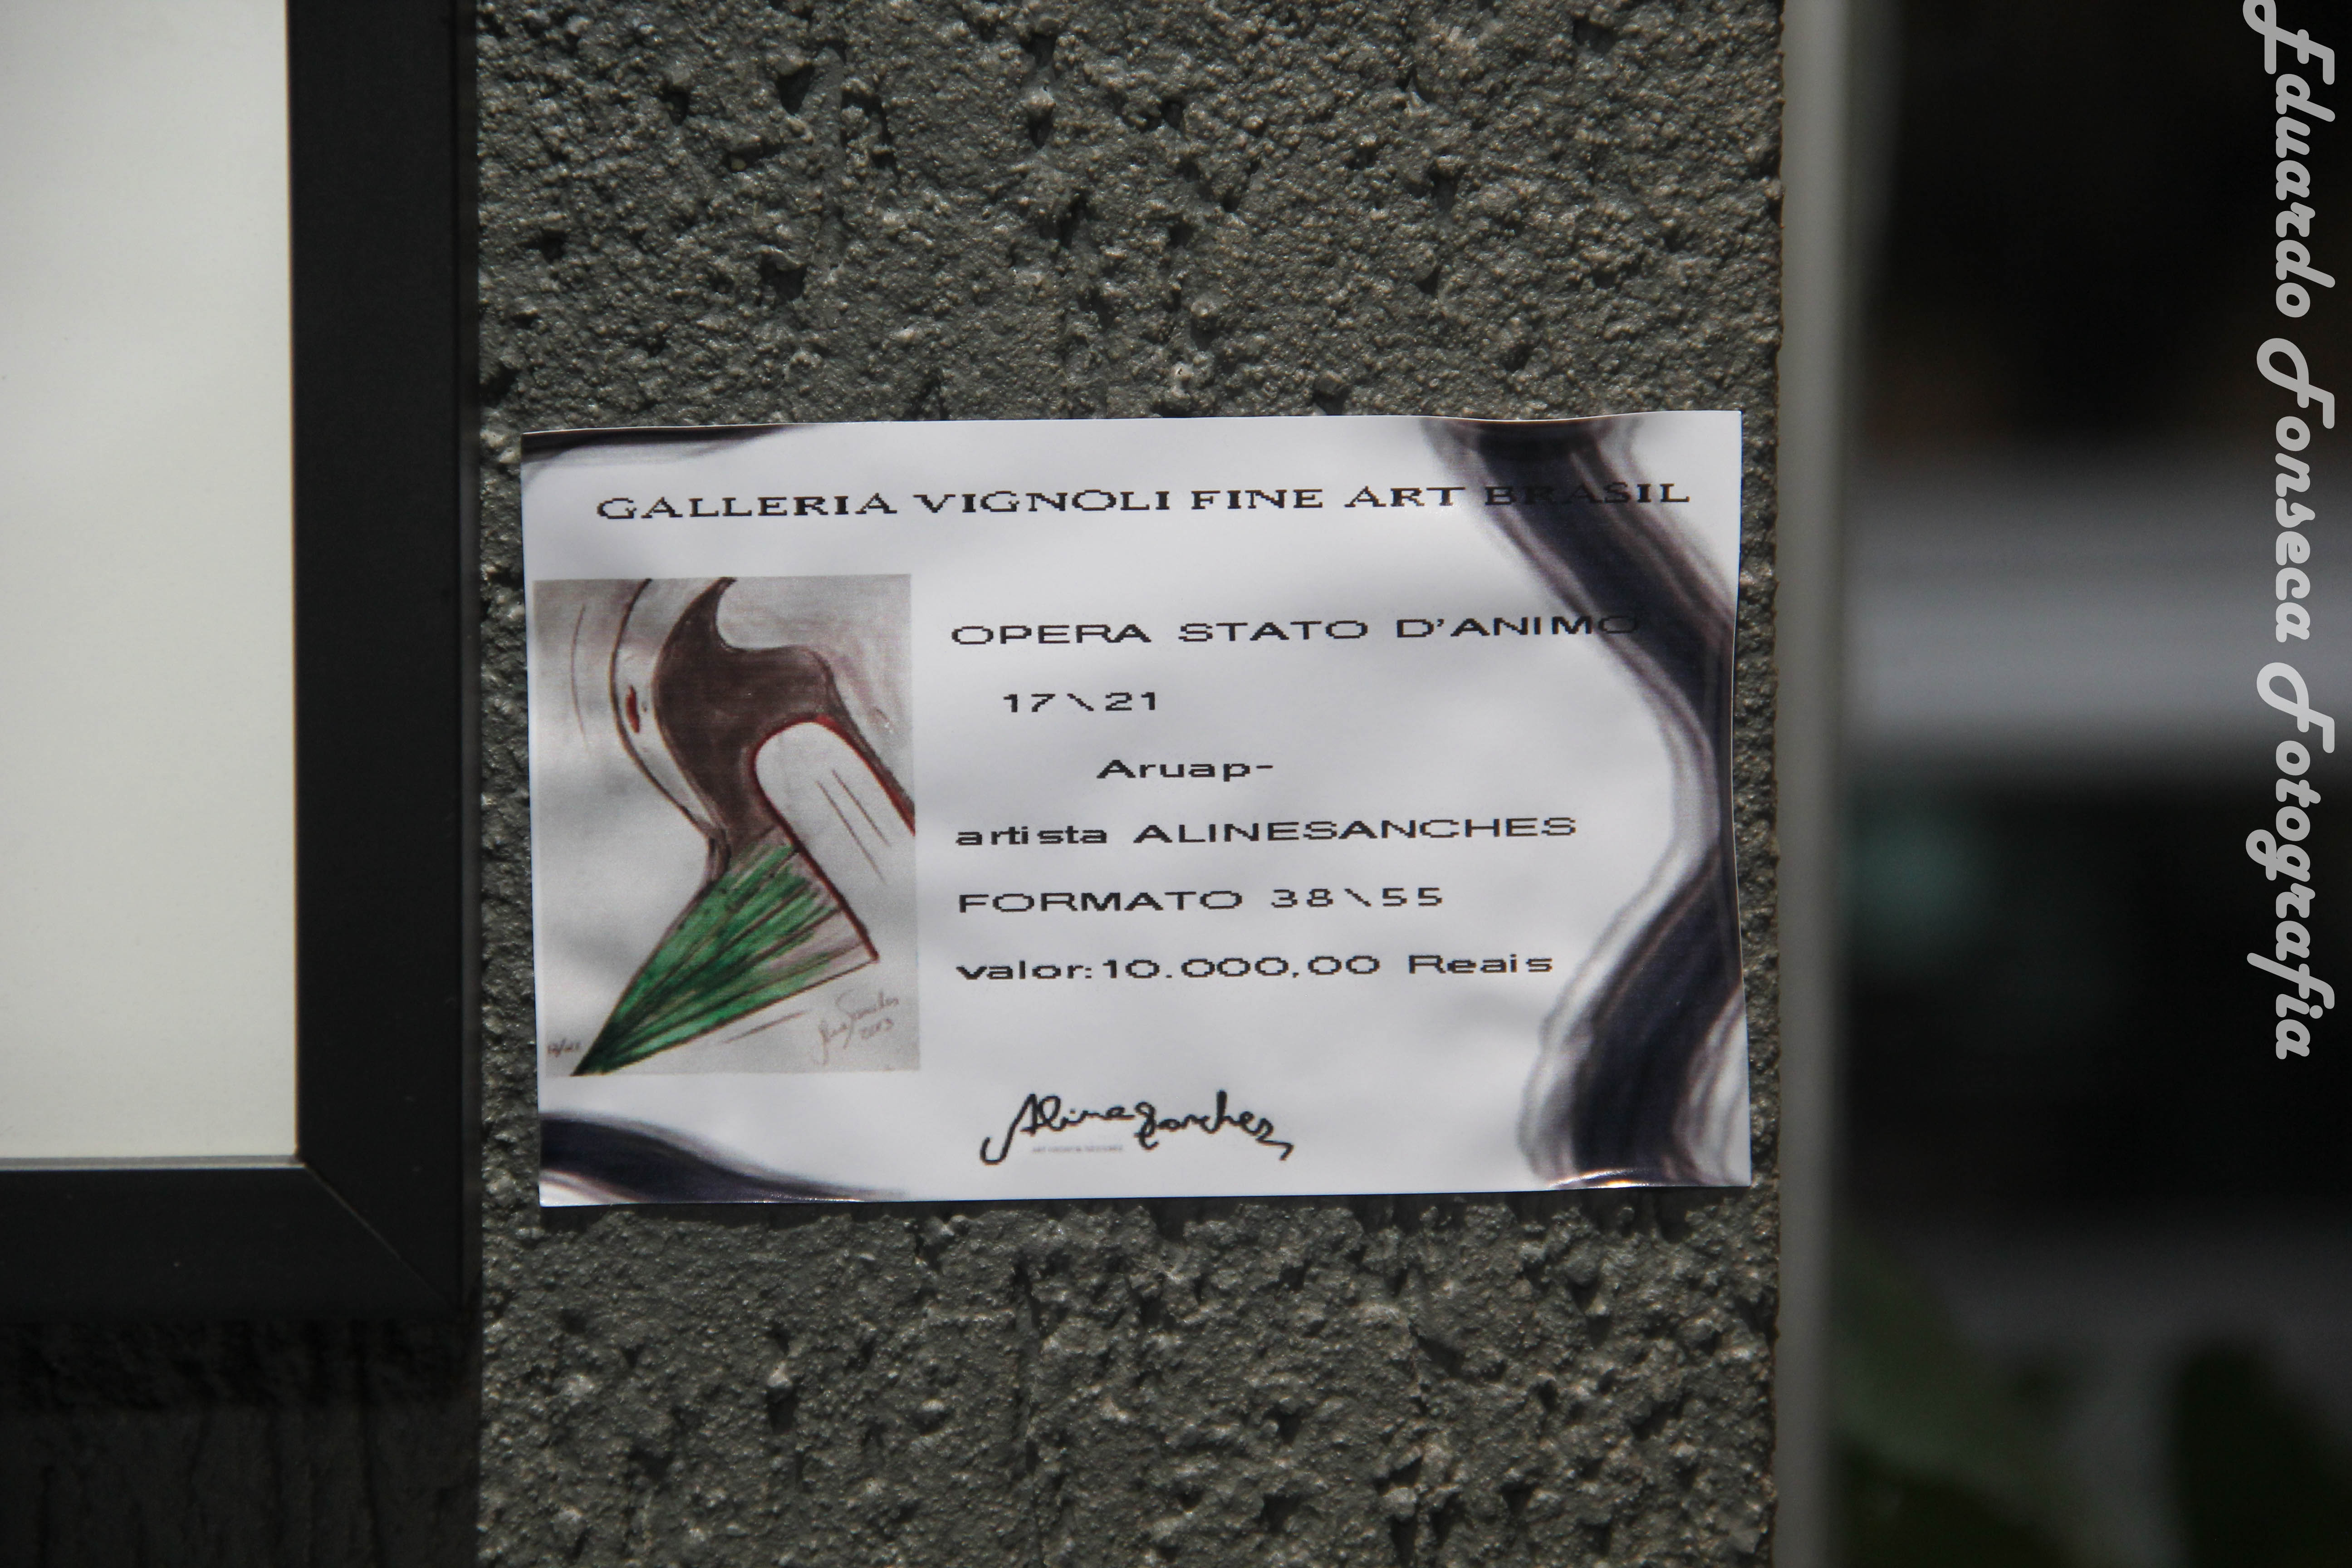 GALLERIA VIGNOLI FINE ART BRASIL
OPERA STATO D'ANIMO
17\21
Aruap-
artista ALINESANCHES
FORMATO 38\55
valor:10.000,00 Reais
17/21
Sanches
2013
AlineSanches
Eduardo Fonseca Fotografia